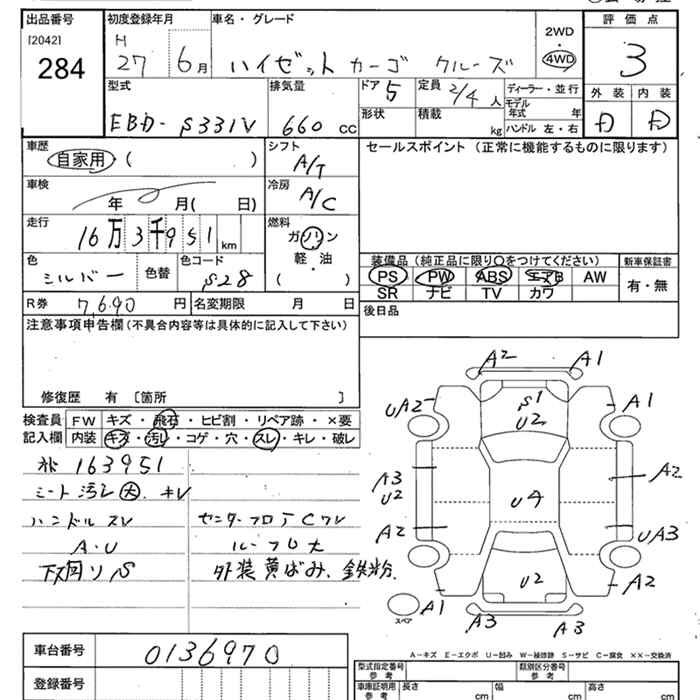 出品番号 初度登録年月 車名・グレード 2WD ・ 4WD 評価点
[2042] H
284 27 6月 ハイゼット カーゴ クルーズ 3
型式 排気量 ドア 5 定員 2/4人 ディーラー・並行 外装 内装
EBD-S331V 660 cc 形状 積載 kg モデル年式 年 D D
ハンドル 左・右
車歴 シフト セールスポイント (正常に機能するものに限ります)
自家用 ( ) A/T
車検 冷房
年 月( 日) A/C
走行 燃料
16万3千951 km ガソリン
軽・油
( )
装備品 (純正品に限り○をつけてください) 新車保証書
色 色替 色コード PS PW ABS エアB AW 有・無
シルバー S28 SR ナビ TV カワ
R券 7,690 円 名変期限 月 日 後日品
注意事項申告欄 (不具合内容等は具体的に記入して下さい)
修復歴 有 [箇所 ]
検査員 FW キズ・飛石・ヒビ割・リペア跡・×要
記入欄 内装 キズ・汚レ・コゲ・穴・スレ・キレ・破レ
163951
シート汚レ大、キレ
ハンドルスレ
A・U ルーフU大
下廻りS 外装黄ばみ、鉄粉
A2 A1
UA2 S1 U2 A1
A3 U2 U4 A2
A2 UA3
U2 A2
スペア A1 A3 A3
A-キズ E-エクボ U-凹み W-補修跡 S-サビ C-腐食 ××-交換済
車台番号 0136970
登録番号
型式指定番号 参考 類別区分番号 参考
車庫証明用 参考 長さ cm 幅 cm 高さ cm